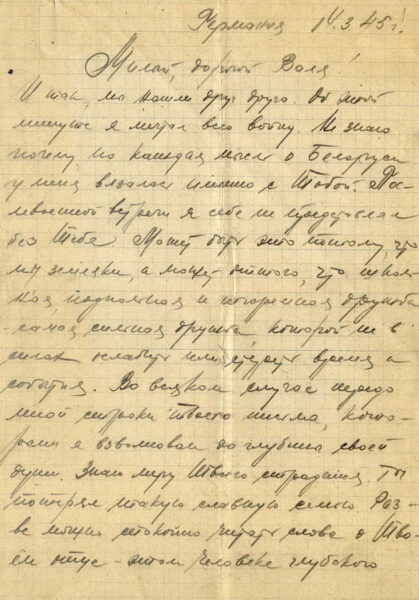 Германия 14.3.45 г.
Милый, дорогой Валя!
Итак, мы нашли друг друга. Об этой
минуте я мечтал всю войну. Не знаю
почему, но каждая мысль о Беларуси
у меня вязалась именно с Тобой. Пос-
левоенной встречи я себе не представлял
без Тебя. Может быть это потому, что
мы земляки, а может оттого, что школь-
ная, и дружба
- самая сильная дружба, которой не в
силах ослабить или стереть время и
события. Во всяком случае передо
мной строки твоего письма, кото-
рыми я взволнован до глубины своей
души. Знаю меру Твоего страдания. Ты
потерял такую славную семью. Раз-
ве можно спокойно читать слова о Тво-
ём отце - этом человеке глубокого